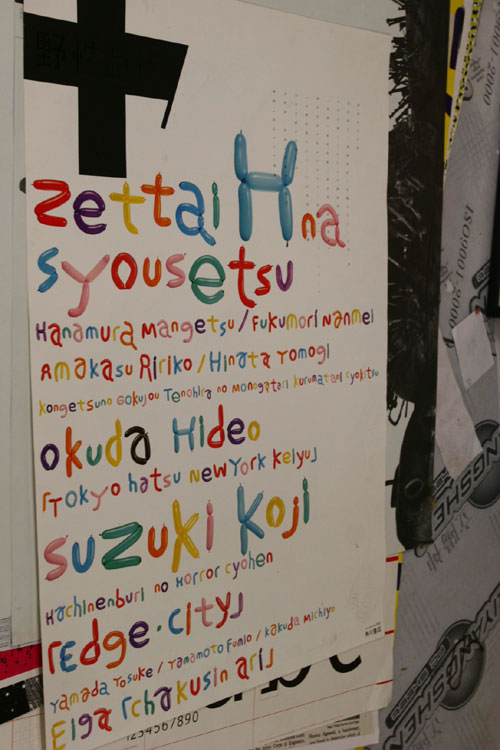 野性
zettai H na
syousetsu
Hanamura Mangetsu / Fukumori Nanmei
Amakasu Ririko / Hinata Yomogi
Kongetsuno Gokujou Tenohira no Monogatari Kurumatani Cyokitsu
Okuda Hideo
「Tokyo hatsu NewYork Keiyu」
Suzuki Koji
Hachinenburi no Horror Cyohen
「Edge・City」
Yamada Yosuke / Yamamoto Fumio / Kakuda Michiyo
Eiga「Chakusin ari」
1234567890